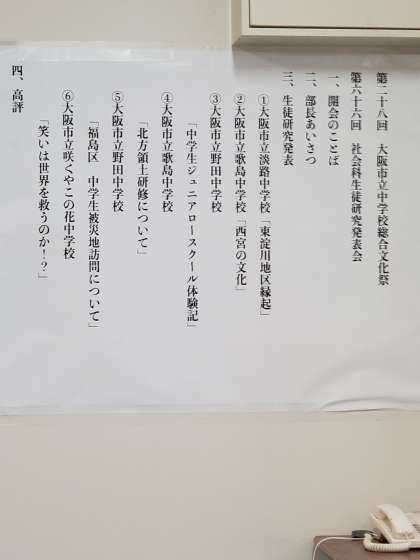 第二十八回　大阪市立中学校総合文化祭
第六十六回　社会科生徒研究発表会
一、開会のことば
二、部長あいさつ
三、生徒研究発表
①大阪市立淡路中学校「東淀川地区縁起」
②大阪市立歌島中学校「西宮の文化」
③大阪市立野田中学校
「中学生ジュニアロースクール体験記」
④大阪市立歌島中学校
「北方領土研修について」
⑤大阪市立野田中学校
「福島区　中学生被災地訪問について」
⑥大阪市立咲くやこの花中学校
「笑いは世界を救うのか！？」
四、高評